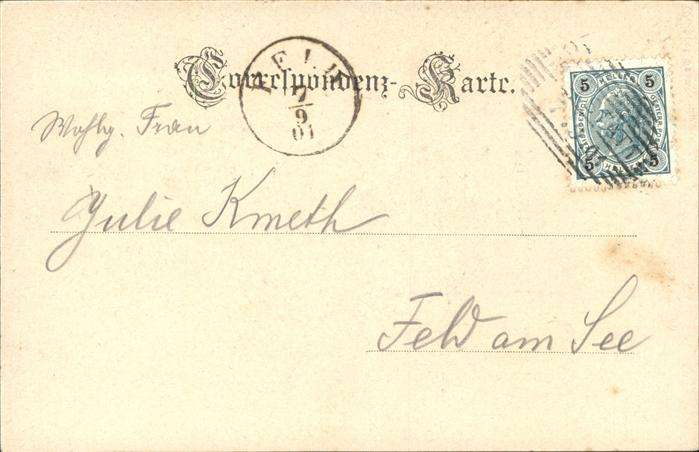 Correspondenz-Karte.
FELD
7
9
01
5 5
5 5
Wohlg. Frau
Julie Kmeth
Feld am See